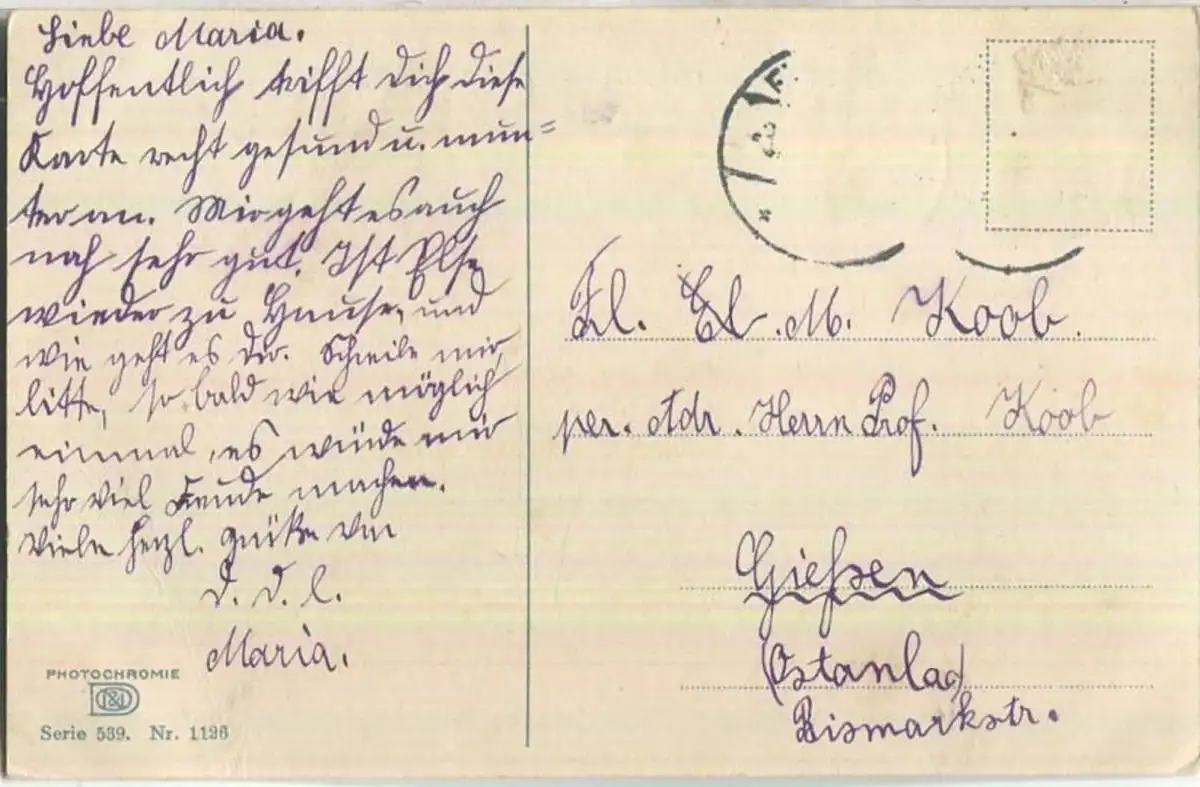 Liebe Maria.
Hoffentlich trifft Dich diese
Karte recht gesund u. mun=
ter an. Mir geht es auch
noch sehr gut. Ist Else
wieder zu Hause, und
wie geht es Dir. Schreibe mir,
bitte, so bald wie möglich
einmal, es würde mir
sehr viel Freude machen.
Viele herzl. Grüße von
D. D. l.
Maria.
PHOTOCHROMIE
Serie 539. Nr. 1126
Frl. El. M. Koob.
per. Adr. Herrn Prof. Koob
Gießen
(Ostanlag)
Bismarkstr.